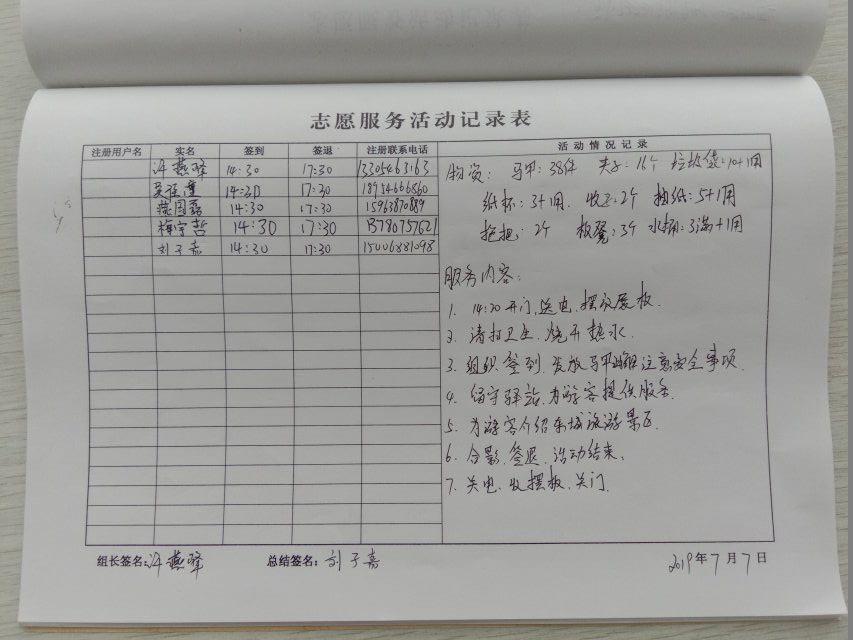 志愿服务活动记录表
注册用户名 实名 签到 签退 注册联系电话 活动情况记录
许燕峰 14:30 17:30 13305463163
14:30 17:30 18954666560
燕国磊 14:30 17:30 15963870889
梅宇哲 14:30 17:30 13780757621
刘子嘉 14:30 17:30 15006881098
物资: 马甲:38件 夹子:16个 垃圾袋:10+1用
纸杯:3+1用、 2个 抽纸:5+1用
拖把:2个 板凳:3个 水桶:3满+1用
服务内容:
1. 14:30开门、送电、摆放展板.
2. 清扫卫生、烧开热水.
3. 组织签到、发放马甲 注意安全事项.
4. 留守驿站,为游客提供服务.
5. 为游客介绍东城旅游景区.
6. 合影、签退、活动结束.
7. 关电、收摆板、关门.
组长签名:许燕峰 总结签名:刘子嘉 2019年7月7日